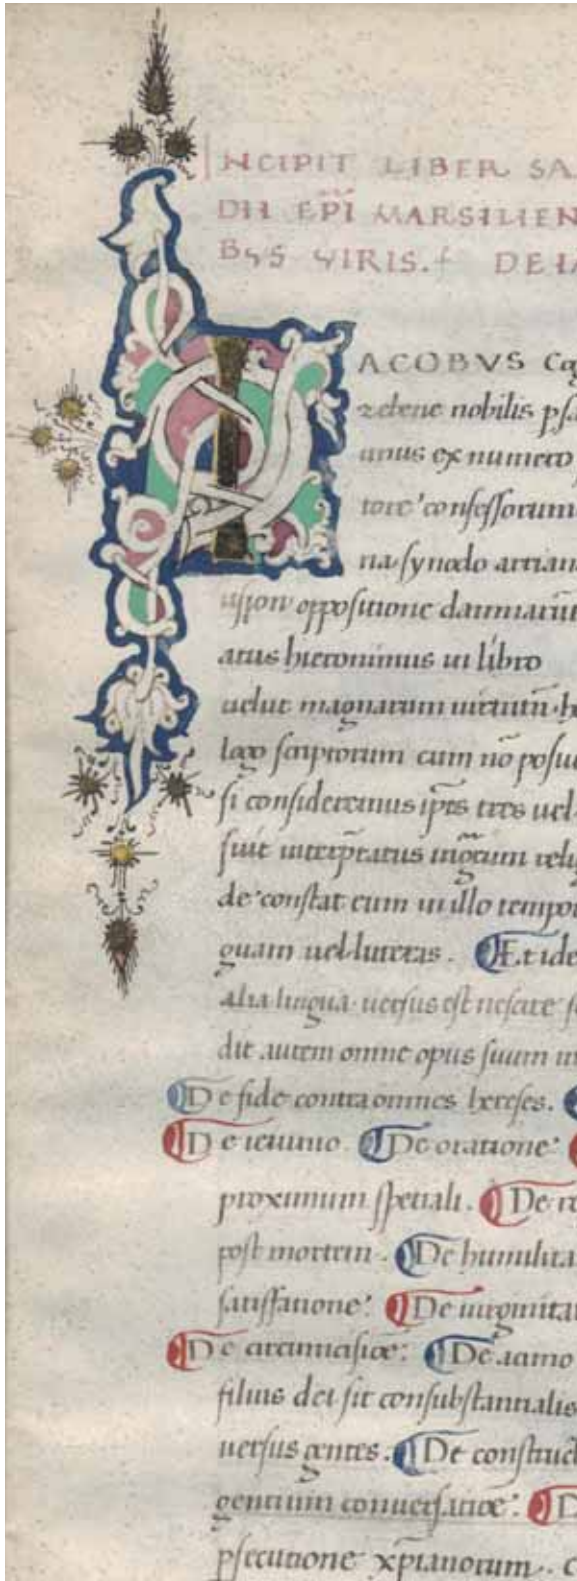 INCIPIT LIBER SA
DII EP̄I MARSILIEN
BVS VIRIS. DE IA
IACOBVS Cog
zebene nobilis psa
unus ex numero
tore confessorum
na synodo arrian
oppositione damnatiū
atus hieronimus in libro
uelut magnarum uirtutū he
logo scriptorum cum nō posui
si consideremus ip̄os tres uel
fuit interp̄tatus mōrum relig
de constat eum in illo tempor
quam uel litteras. Et ide
alia lingua uersus est nescire s
dit autem omne opus suum in
De fide contra omnes hereses.
De ieiunio. De oratione
proximum spetiali. De re
post mortem. De humilita
satisfatione. De uirginitat
De circumcisiōe. De
filius dei sit consubstantialis
uersus gentes. De construct
gentium conuersatiōe. D
psecutione xp̄ianorum. C